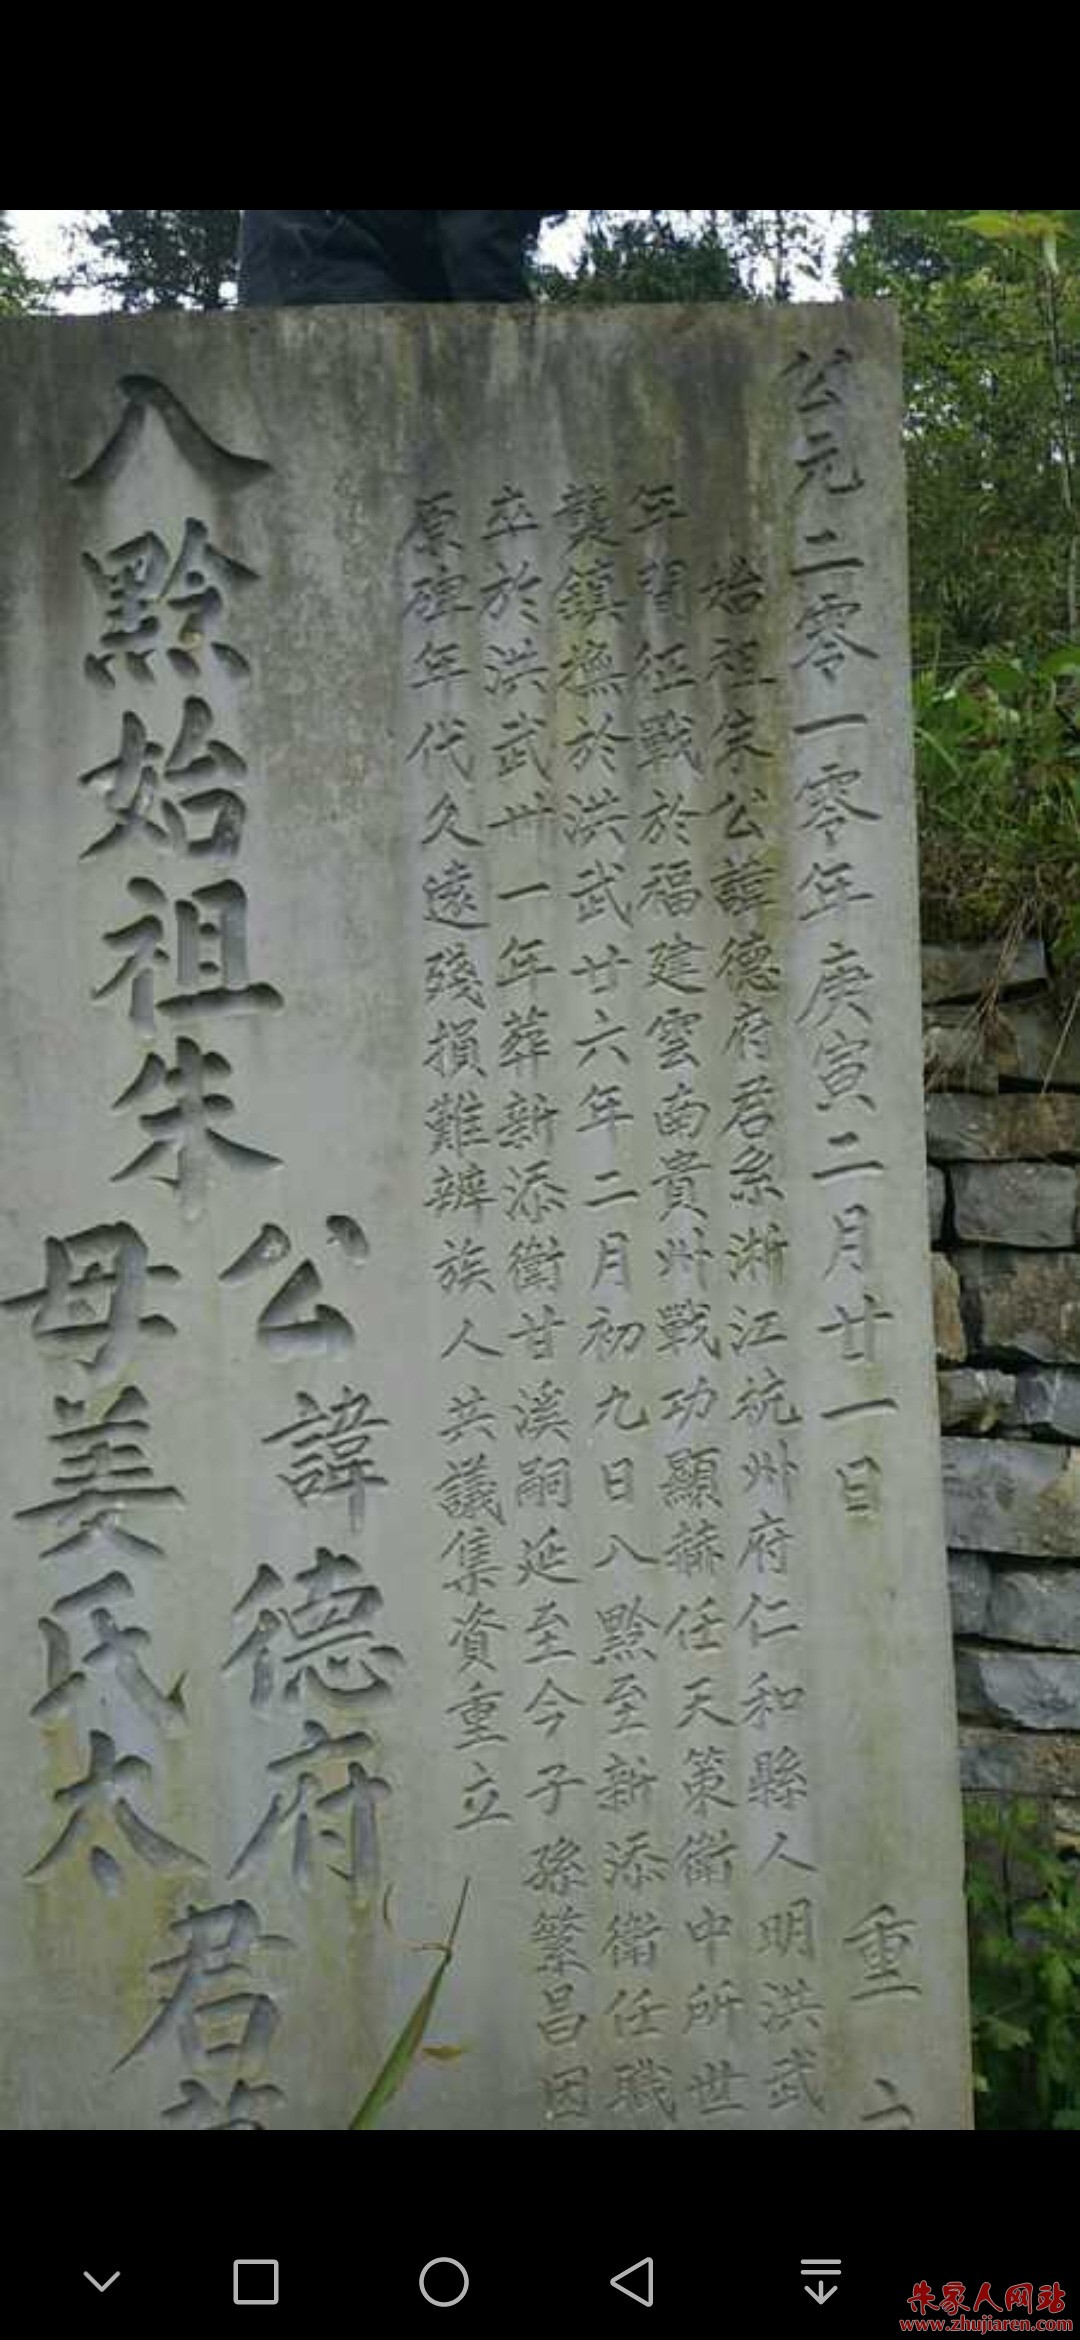 公元二零一零年庚寅二月廿一日 重立
始祖朱公諱德府君系浙江杭州府仁和縣人明洪武
年間征戰於福建雲南貴州戰功顯赫任天策衛中所世
襲鎮撫於洪武廿六年二月初九日八黔至新添衛任職
卒於洪武卅一年葬新添衛甘溪嗣延至今子孫繁昌因
原碑年代久遠殘損難辨族人共議集資重立
八黔始祖朱
公諱德府
母姜氏太
君
朱家人网站
www.zhujiaren.com